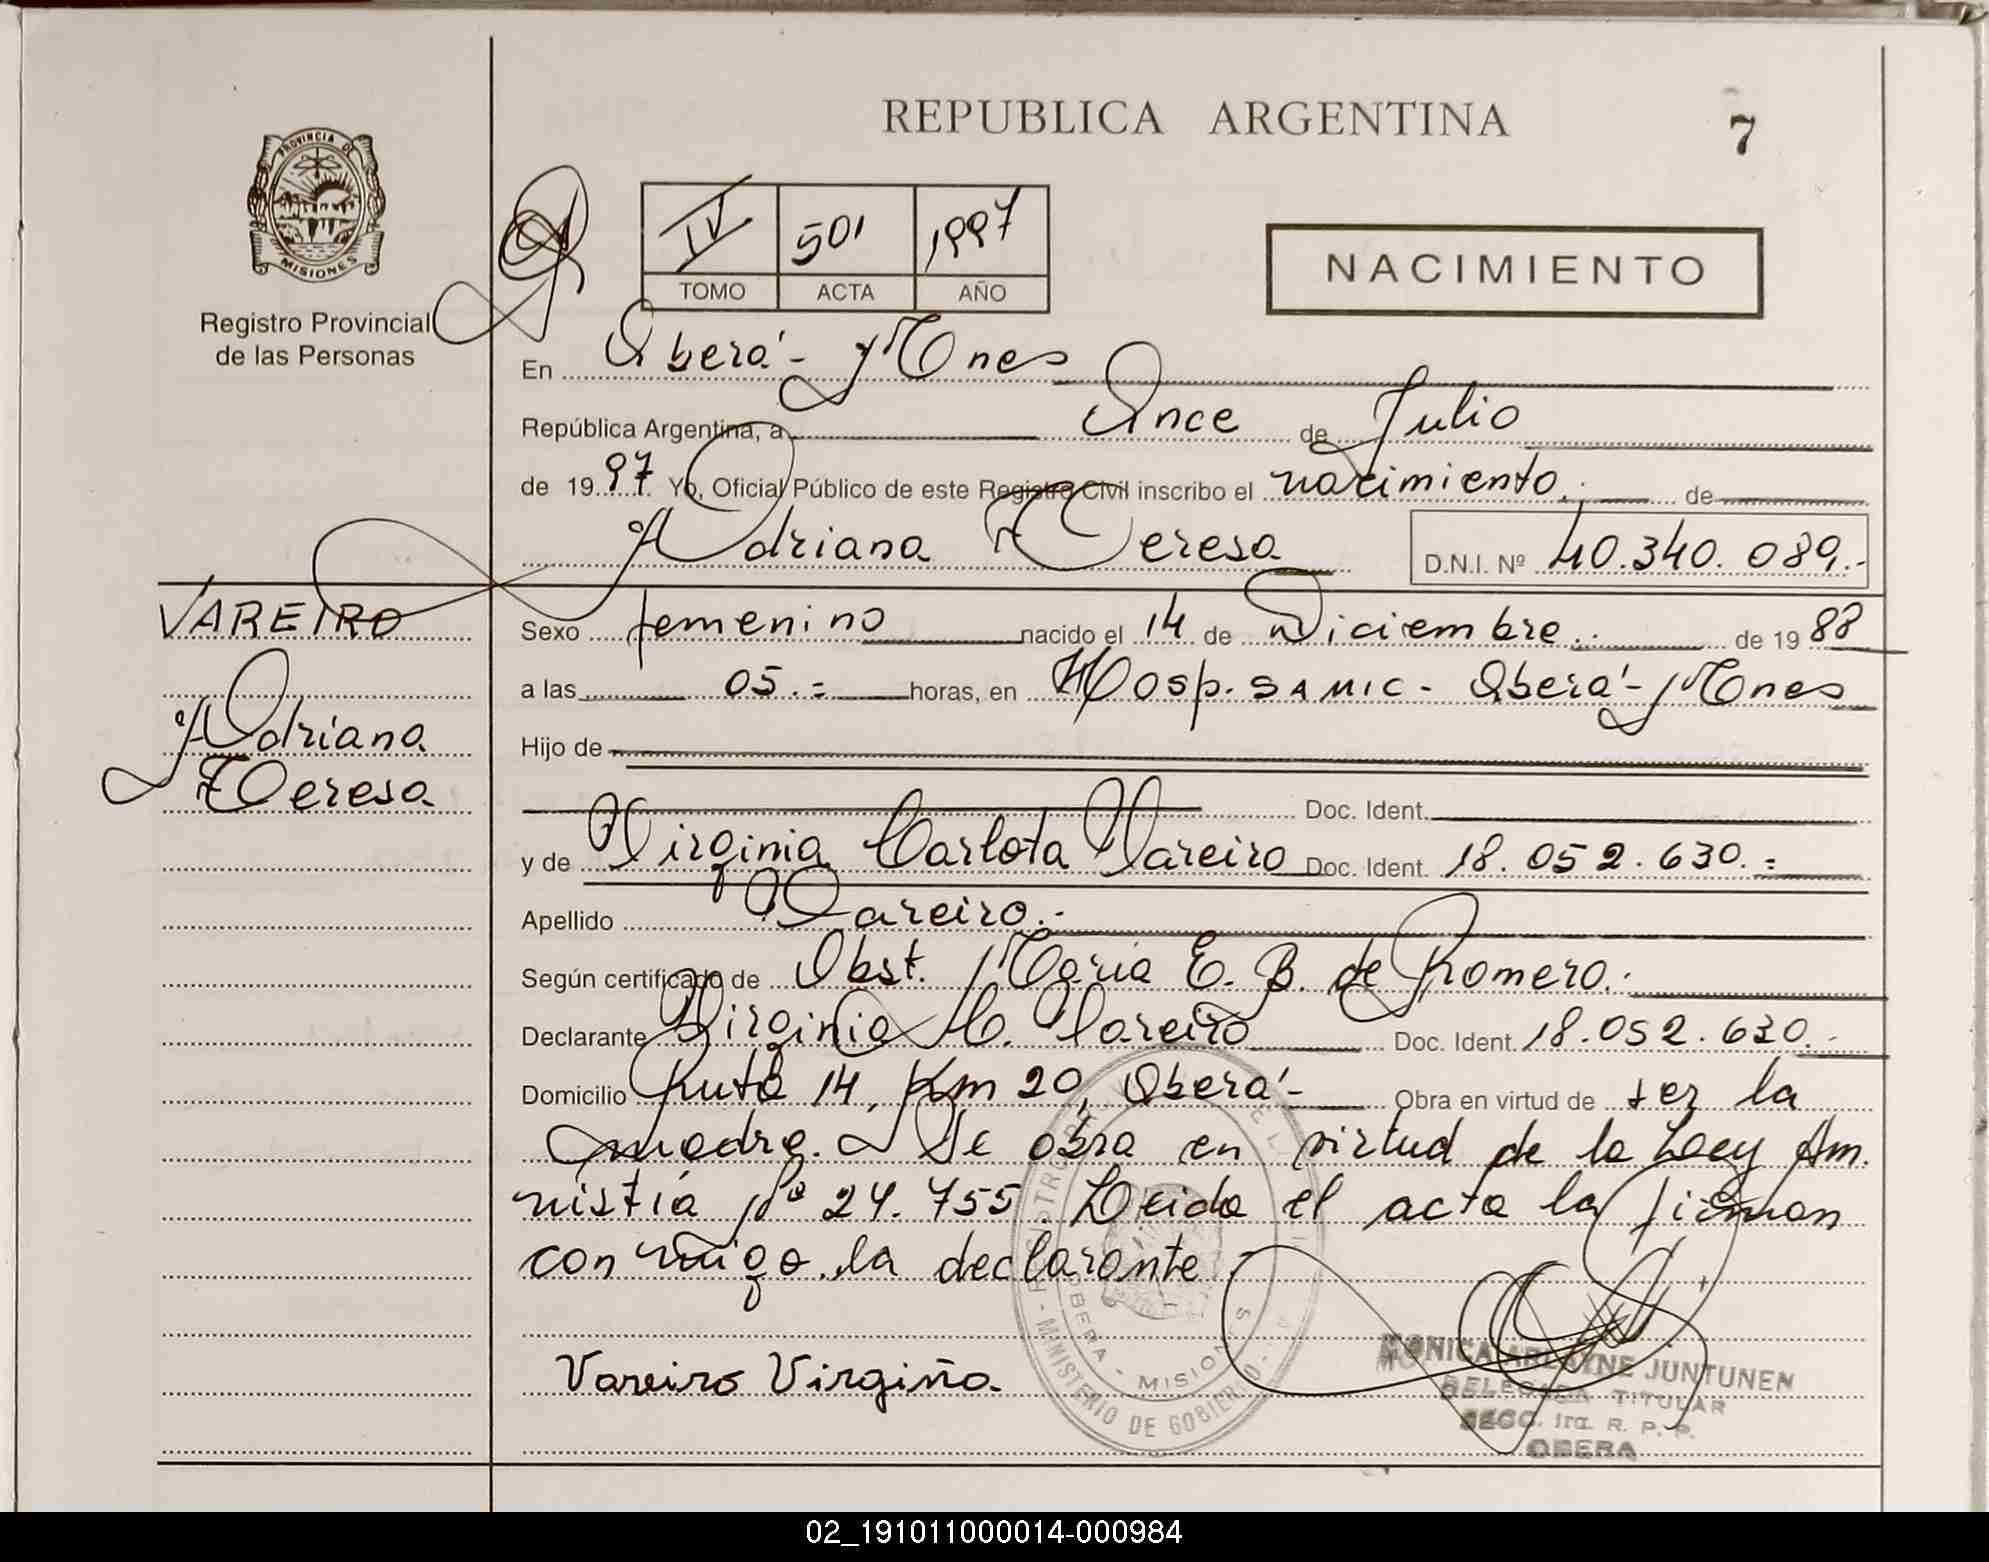 REPUBLICA ARGENTINA
7
PROVINCIA DE
MISIONES
Registro Provincial
de las Personas
IV 501 1997
TOMO ACTA AÑO
NACIMIENTO
En Oberá - Mnes
República Argentina, a Once de Julio
de 1997. Yo, Oficial Público de este Registro Civil inscribo el nacimiento.- de
Adriana Teresa D.N.I. Nº 40.340.089.-
VAREIRO
Adriana
Teresa
Sexo femenino nacido el 14 de Diciembre.. de 1988
a las 05.= horas, en Hosp. SAMIC - Oberá - Mnes
Hijo de
Doc. Ident.
y de Virginia Carlota Vareiro Doc. Ident. 18.052.630.=
Apellido Vareiro.-
Según certificado de Obst. Maria E. B. de Romero.-
Declarante Virginia C. Vareiro Doc. Ident. 18.052.630.-
Domicilio Ruta 14, Km 20, Oberá - Obra en virtud de ser la
madre. Se obra en virtud de la Ley Am.
nistía Nº 24.755. Leida el acta la firman
conmigo la declarante
Vareiro Virginia.
MINISTERIO DE GOBIERNO
OBERA - MISIONES
MONICA ARLAYNE JUNTUNEN
DELEGADA TITULAR
SECC. 1ra. R. P. P.
OBERA
02_191011000014-000984